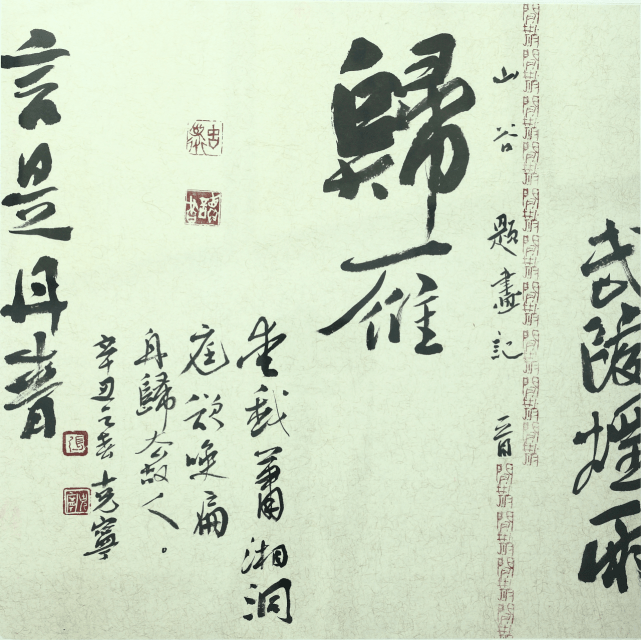 武陵煙雨
山谷題畫記一首
歸雁
坐我蕭湘洞
庭欲喚扁
舟歸去故人。
辛丑之春克寧
言是丹青